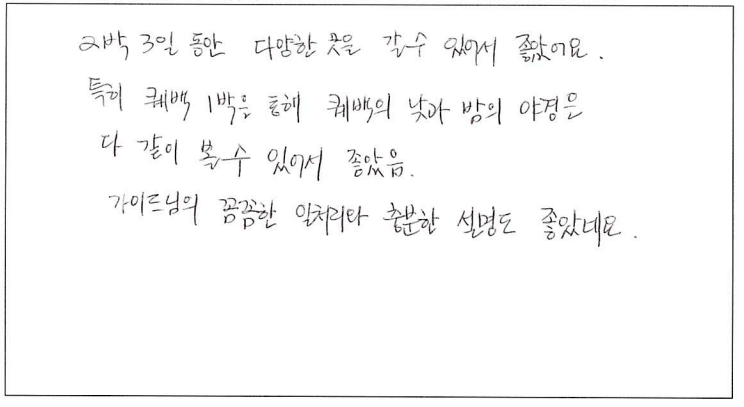 2박 3일 동안 다양한 곳을 갈수 있어서 좋았어요.
특히 퀘백 1박을 통해 퀘백의 낮과 밤의 야경은
다 같이 볼수 있어서 좋았음.
가이드님의 꼼꼼한 일처리와 충분한 설명도 좋았네요.